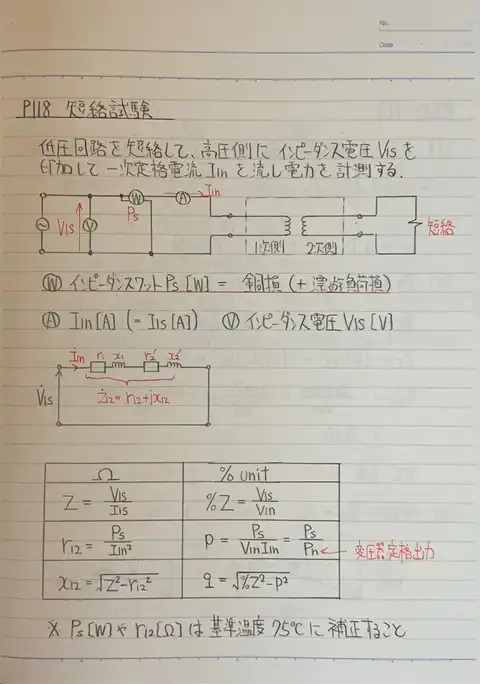 No.
Date
P118 短絡試験
低圧回路を短絡して、高圧側にインピーダンス電圧V1sを
印加して一次定格電流I1nを流し電力を計測する.
W A I1n
V1s V Ps 短絡
1次側 2次側
Ⓦ インピーダンスワットPs [W] = 銅損 (+ 漂遊負荷損)
Ⓐ I1n[A] (= I1s[A]) Ⓥ インピーダンス電圧V1s[V]
İ1n r1 x1 r2' x2'
V̇1s ż12 = r12+jx12
Ω % unit
Z = V1s/I1s %Z = V1s/V1n
r12 = Ps/I1n² p = Ps/V1nI1n = Ps/Pn ← 変圧器定格出力
x12 = √Z²-r12² q = √%Z²-p²
※ Ps[W]や r12[Ω]は 基準温度 75℃に補正すること